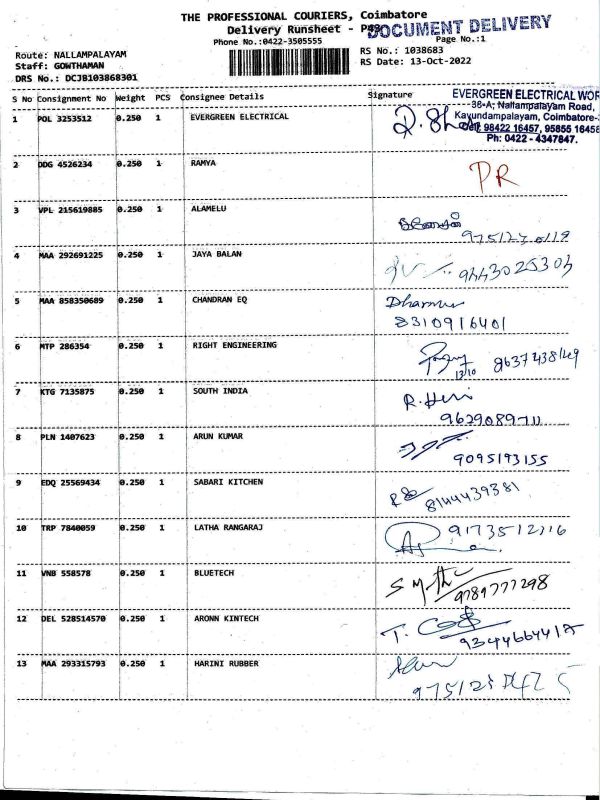 THE PROFESSIONAL COURIERS, Coimbatore
Delivery Runsheet -
DOCUMENT DELIVERY
Phone No.:0422-3505555
Page No.:1
Route: NALLAMPALAYAM
RS No.: 1038683
Staff: GOWTHAMAN
RS Date: 13-Oct-2022
DRS No.: DCJB103868301
S No Consignment No Weight PCS Consignee Details Signature
EVERGREEN ELECTRICAL WOR
36-A, Nallampalayam Road,
Kavundampalayam, Coimbatore-
Cell: 98422 16457, 95855 16458
Ph: 0422 - 4347847.
1 POL 3253512 0.250 1 EVERGREEN ELECTRICAL
2 DDG 4526234 0.250 1 RAMYA PR
3 VPL 215619885 0.250 1 ALAMELU
4 MAA 292691225 0.250 1 JAYA BALAN 9443025303
5 MAA 858350689 0.250 1 CHANDRAN EQ
8310916401
6 MTP 286354 0.250 1 RIGHT ENGINEERING
13/10
7 KTG 7135875 0.250 1 SOUTH INDIA R. Hari
8 PLN 1407623 0.250 1 ARUN KUMAR
9095193155
9 EDQ 25569434 0.250 1 SABARI KITCHEN 8144439381
10 TRP 7840059 0.250 1 LATHA RANGARAJ
11 VNB 558578 0.250 1 BLUETECH
9789777298
12 DEL 528514570 0.250 1 ARONN KINTECH
13 MAA 293315793 0.250 1 HARINI RUBBER